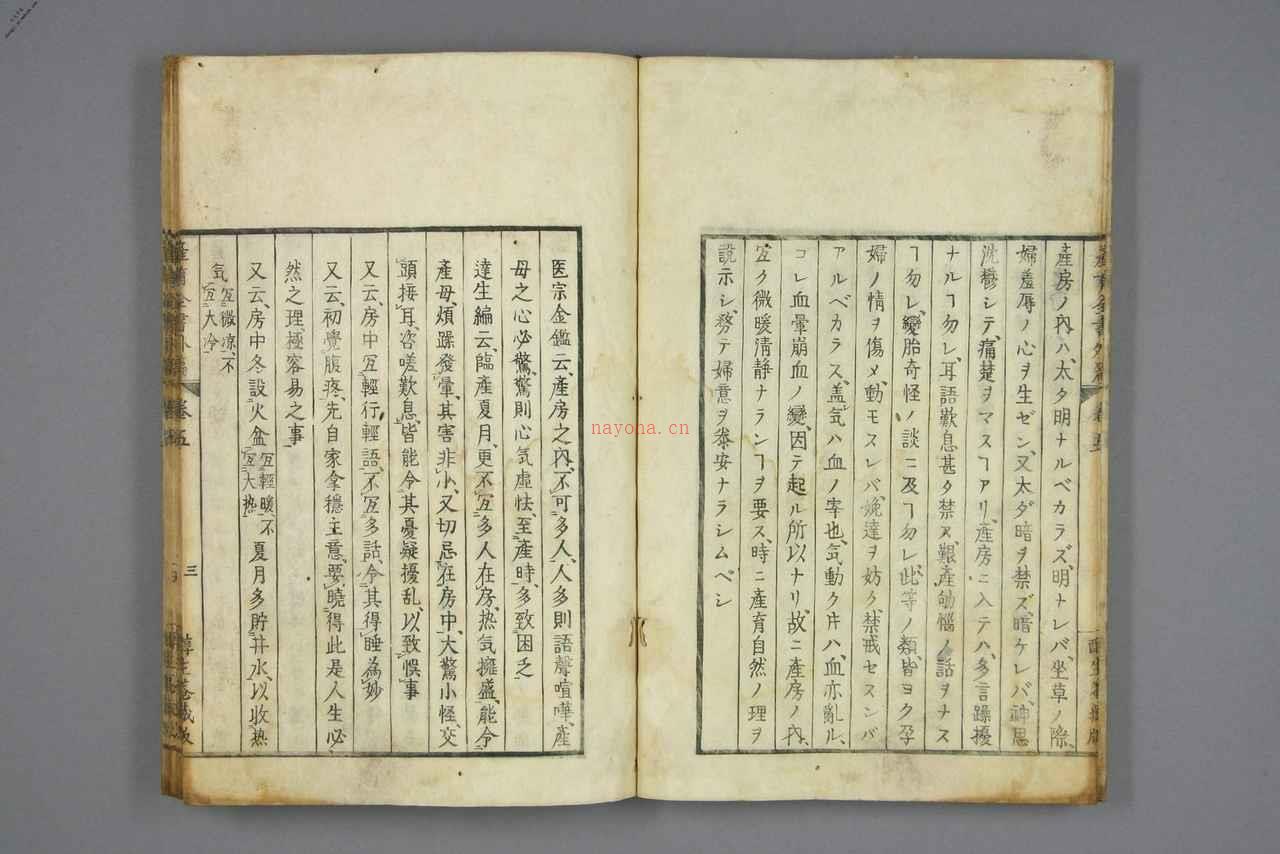 產房ノ內ハ、太タ明ナルベカラズ、明ナレバ、坐草ノ際、
婦羞辱ノ心ヲ生ゼン、又太ダ暗ヲ禁ズ、暗ケレバ、神思
沈鬱シテ、痛楚ヲマスヿアリ、產房ニ入テハ、多言躁擾
ナルヿ勿レ、耳語歎息甚タ禁ス、艱產
惱ノ話ヲナス
ヿ勿レ、變胎奇怪ノ談ニ及ヿ勿レ、此等ノ類、皆ヨク孕
婦ノ情ヲ傷メ、動モスレバ、娩達ヲ妨ク、禁戒セスンバ
アルベカラス、盖気ハ血ノ宰也、気動ク𪜈ハ、血亦亂ル、
コレ血暈崩血ノ變、因テ起ル所以ナリ、故ニ產房ノ內、
宐ク微暖清静ナランヿヲ要ス、時ニ產育自然ノ理ヲ
說示シ、務テ婦意ヲ泰安ナラシムベシ
医宗金鑑云、產房之內、不可多人、人多則語聲喧嘩、產
母之心必驚、驚則心気虛怯、至產時、多致困乏
達生編云、臨產夏月、更不宐多人在房、热気擁盛、能令
產母、煩躁發暈、其害非小、又切忌在房中、大驚小怪、交
頭接耳、咨嗟歎息、皆能令其憂疑擾乱、以致悞事
又云、房中宐輕行、輕語、不宐多話、令其得睡為妙
又云、初覺腹疼、先自家拿穩主意、要曉得此是人生必
然之理、極容易之事
又云、房中冬設火盆、宐輕暖、不宐大热 夏月多貯井水、以收热
気、宐微凉、不宐大冷
卷五
三
nayona.cn